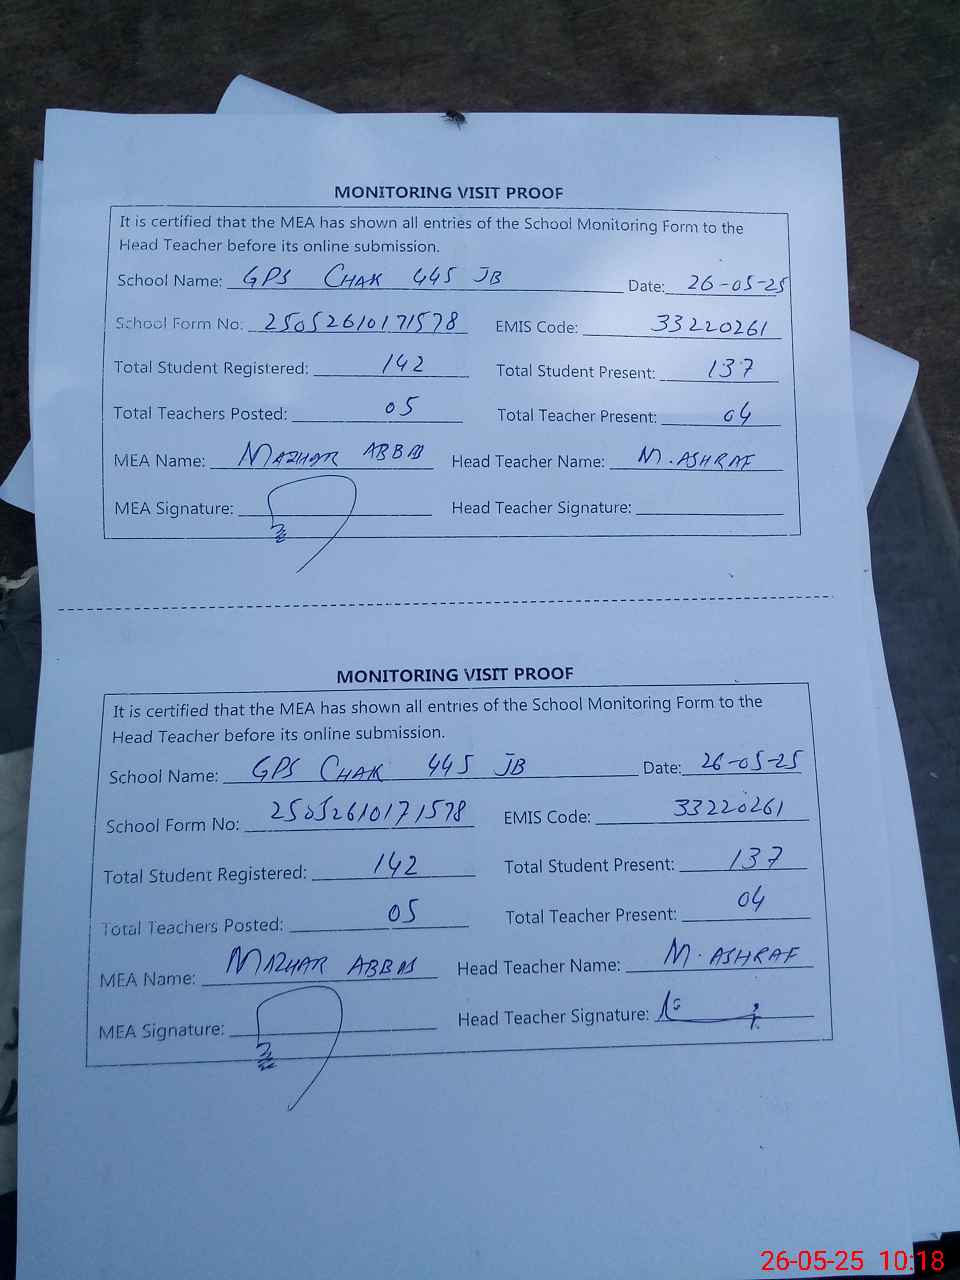 MONITORING VISIT PROOF
It is certified that the MEA has shown all entries of the School Monitoring Form to the
Head Teacher before its online submission.
School Name: GPS CHAK 445 JB Date: 26-05-25
School Form No: 25052610171578 EMIS Code: 33220261
Total Student Registered: 142 Total Student Present: 137
Total Teachers Posted: 05 Total Teacher Present: 04
MEA Name: MAZHAR ABBAS Head Teacher Name: M. ASHRAF
MEA Signature: Head Teacher Signature:
MONITORING VISIT PROOF
It is certified that the MEA has shown all entries of the School Monitoring Form to the
Head Teacher before its online submission.
School Name: GPS CHAK 445 JB Date: 26-05-25
School Form No: 25052610171578 EMIS Code: 33220261
Total Student Registered: 142 Total Student Present: 137
Total Teachers Posted: 05 Total Teacher Present: 04
MEA Name: MAZHAR ABBAS Head Teacher Name: M. ASHRAF
MEA Signature: Head Teacher Signature:
26-05-25 10:18